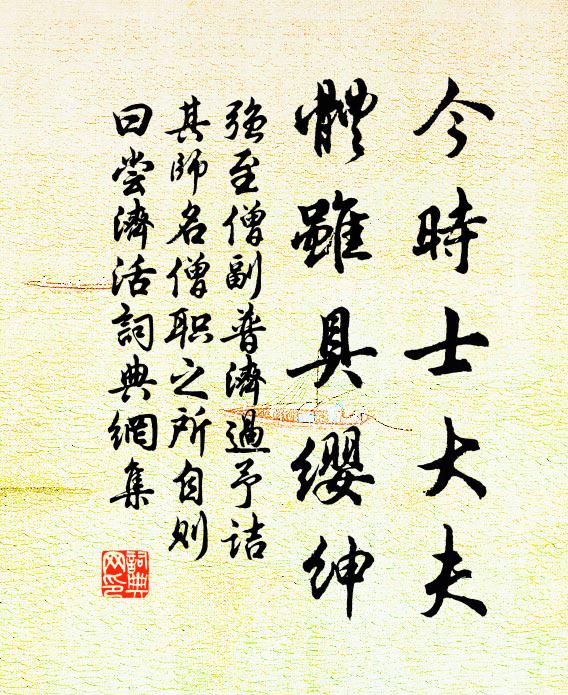 今時士大夫
體雖具纓紳
强至僧副普濟過予詰
其師名僧职之所自则
曰尝濟活詞典網集
詞典
网印